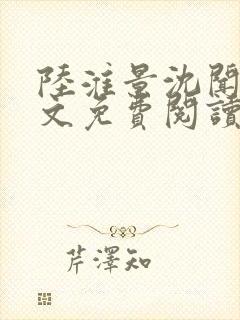 陸淮景沈聞
文免費閱讀
芹澤知